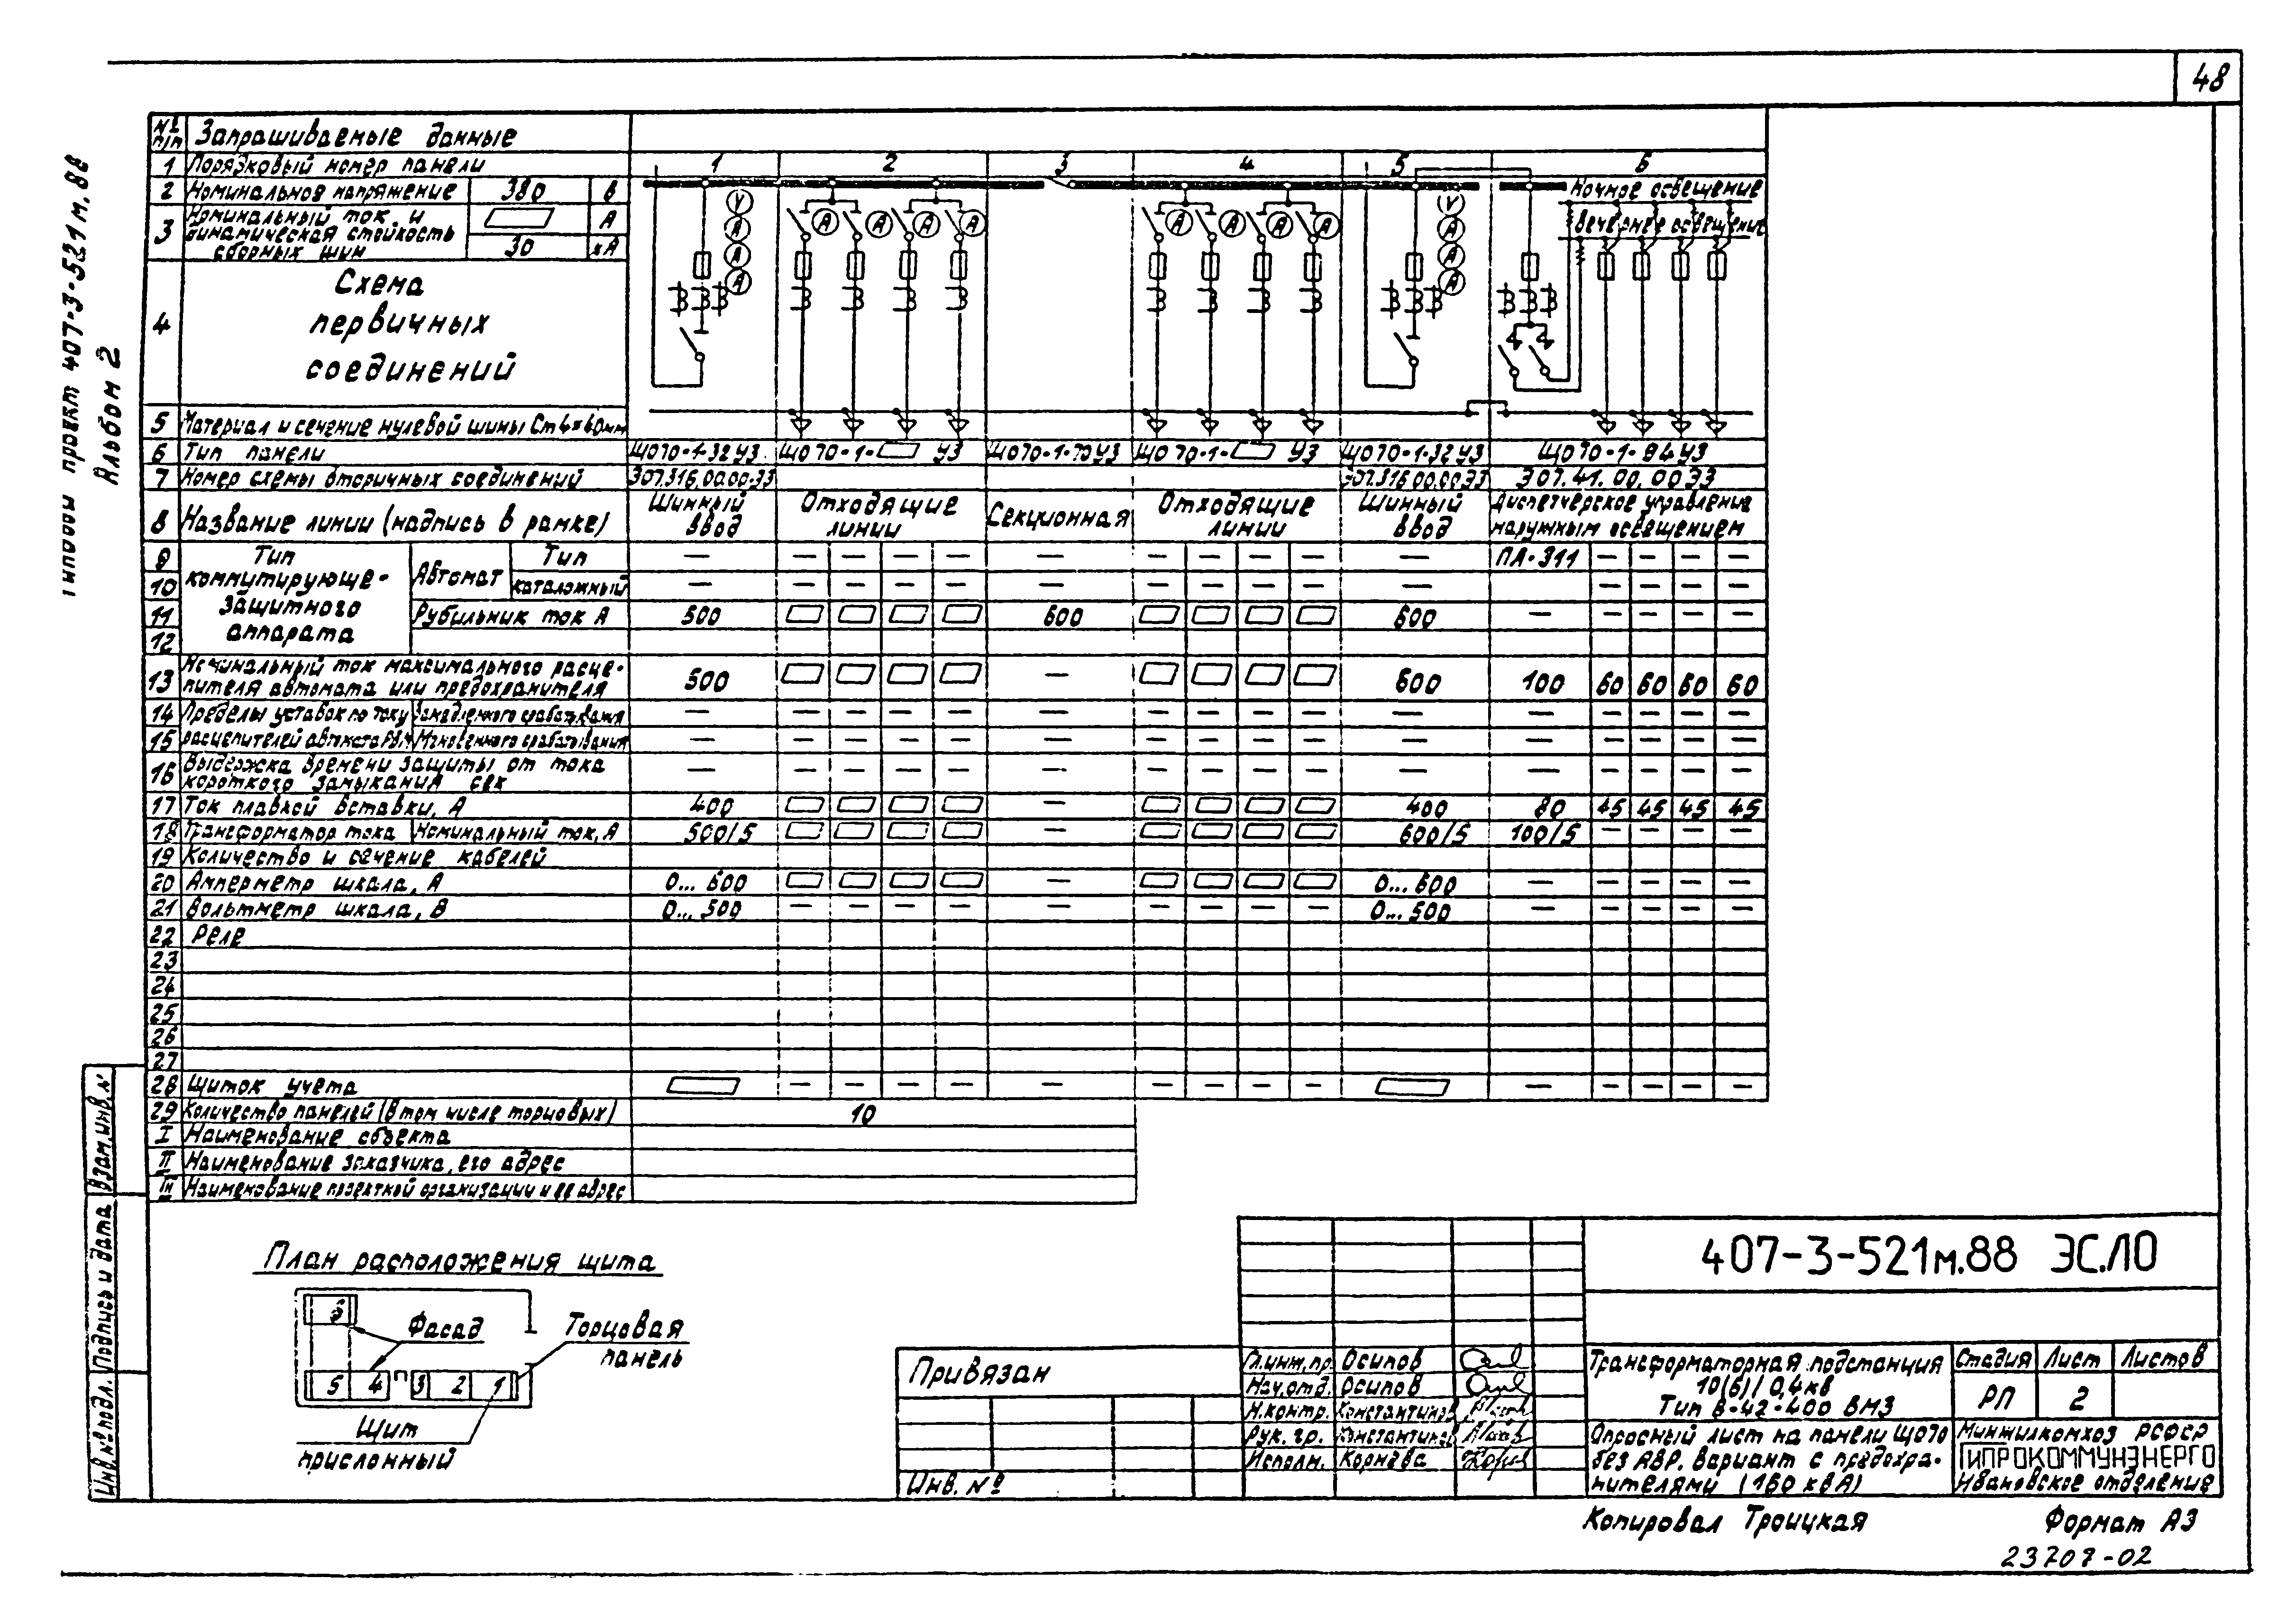 48
Типовой проект 407-3-521м.88
Альбом 2
№ п/п Запрашиваемые данные
1 Порядковый номер панели 1 2 3 4 5 6
2 Номинальное напряжение 380 В
3 Номинальный ток и динамическая стойкость сборных шин А
30 кА
Ночное освещение
Вечернее освещение
V А А А
А А А А
А А А А
V А А А
4 Схема
первичных
соединений
5 Материал и сечение нулевой шины Ст 4×40мм
6 Тип панели ЩО70-1-32У3 ЩО70-1- У3 ЩО70-1-70У3 ЩО70-1- У3 ЩО70-1-32У3 ЩО70-1-94У3
7 Номер схемы вторичных соединений Э07.316.00.00.Э3 Э07.316.00.00Э3 Э07.41.00.00Э3
8 Название линии (надпись в рамке) Шинный ввод Отходящие линии Секционная Отходящие линии Шинный ввод Диспетчерское управление наружным освещением
Тип коммутирующе-защитного аппарата
9 Автомат Тип — — — — — — — — — — — ПА-311 — — — —
10 каталожный — — — — — — — — — — —
11 Рубильник ток А 500 600 600 — — — — —
12
13 Номинальный ток максимального расце-
пителя автомата или предохранителя 500 — 600 100 60 60 60 60
14 Пределы уставок по току Замедленного срабатывания — — — — — — — — — — — — — — — —
15 расцепителей автомата Мгновенного срабатывания — — — — — — — — — — — — — — — —
16 Выдержка времени защиты от тока
короткого замыкания сек — — — — — — — — — — — — — — — —
17 Ток плавкой вставки, А 400 — 400 80 45 45 45 45
18 Трансформатор тока Номинальный ток, А 500/5 — 600/5 100/5 — — — —
19 Количество и сечение кабелей
20 Амперметр шкала, А 0... 600 — 0... 600 — — — — —
21 Вольтметр шкала, В 0... 500 — — — — — — — — — 0... 500 — — — — —
22 Реле
23
24
25
26
27
28 Щиток учета — — — — — — — — — — — — — —
29 Количество панелей (в том числе торцовых) 10
I Наименование объекта
II Наименование заказчика, его адрес
III Наименование проектной организации и ее адрес
План расположения щита
6
Фасад
Торцовая
панель
5 4 3 2 1
Щит
прислонный
Взам.инв.№
Подпись и дата
Инв.№подл.
Привязан
Инв. №
407-3-521м.88 ЭС.ЛО
Гл.инж.пр. Осипов
Нач.отд. Осипов
Н.контр. Константинов
Рук. гр. Константинов
Исполн. Корнева
Трансформаторная подстанция
10(6)/0,4кв
Тип В-42-400 ВМ3
Стадия Лист Листов
РП 2
Опросный лист на панели ЩО70
без АВР. Вариант с предохра-
нителями (160 кВА)
Минжилкомхоз РСФСР
ГИПРОКОММУНЭНЕРГО
Ивановское отделение
Копировал Троицкая Формат А3
23707-02